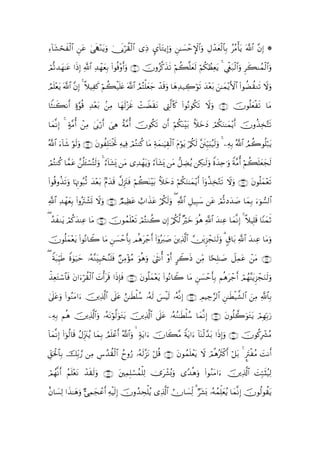 ۞ إِنَّ ٱللَّهَ يَأْمُرُ بِٱلْعَدْلِ وَٱلْإِحْسَٰنِ وَإِيتَآئِ ذِى ٱلْقُرْبَىٰ وَيَنْهَىٰ عَنِ ٱلْفَحْشَآءِ
وَٱلْمُنكَرِ وَٱلْبَغْىِ ۚ يَعِظُكُمْ لَعَلَّكُمْ تَذَكَّرُونَ ۝ وَأَوْفُوا۟ بِعَهْدِ ٱللَّهِ إِذَا عَٰهَدتُّمْ
وَلَا تَنقُضُوا۟ ٱلْأَيْمَٰنَ بَعْدَ تَوْكِيدِهَا وَقَدْ جَعَلْتُمُ ٱللَّهَ عَلَيْكُمْ كَفِيلًا ۚ إِنَّ ٱللَّهَ يَعْلَمُ
مَا تَفْعَلُونَ ۝ وَلَا تَكُونُوا۟ كَٱلَّتِى نَقَضَتْ غَزْلَهَا مِنۢ بَعْدِ قُوَّةٍ أَنكَٰثًا
تَتَّخِذُونَ أَيْمَٰنَكُمْ دَخَلًۢا بَيْنَكُمْ أَن تَكُونَ أُمَّةٌ هِىَ أَرْبَىٰ مِنْ أُمَّةٍ ۚ إِنَّمَا
يَبْلُوكُمُ ٱللَّهُ بِهِۦ ۚ وَلَيُبَيِّنَنَّ لَكُمْ يَوْمَ ٱلْقِيَٰمَةِ مَا كُنتُمْ فِيهِ تَخْتَلِفُونَ ۝ وَلَوْ شَآءَ ٱللَّهُ
لَجَعَلَكُمْ أُمَّةً وَٰحِدَةً وَلَٰكِن يُضِلُّ مَن يَشَآءُ وَيَهْدِى مَن يَشَآءُ ۚ وَلَتُسْـَٔلُنَّ عَمَّا كُنتُمْ
تَعْمَلُونَ ۝ وَلَا تَتَّخِذُوٓا۟ أَيْمَٰنَكُمْ دَخَلًۢا بَيْنَكُمْ فَتَزِلَّ قَدَمٌۢ بَعْدَ ثُبُوتِهَا وَتَذُوقُوا۟
ٱلسُّوٓءَ بِمَا صَدَدتُّمْ عَن سَبِيلِ ٱللَّهِ ۖ وَلَكُمْ عَذَابٌ عَظِيمٌ ۝ وَلَا تَشْتَرُوا۟ بِعَهْدِ ٱللَّهِ
ثَمَنًا قَلِيلًا ۚ إِنَّمَا عِندَ ٱللَّهِ هُوَ خَيْرٌ لَّكُمْ إِن كُنتُمْ تَعْلَمُونَ ۝ مَا عِندَكُمْ يَنفَدُ ۖ
وَمَا عِندَ ٱللَّهِ بَاقٍ ۗ وَلَنَجْزِيَنَّ ٱلَّذِينَ صَبَرُوٓا۟ أَجْرَهُم بِأَحْسَنِ مَا كَانُوا۟ يَعْمَلُونَ
۝ مَنْ عَمِلَ صَٰلِحًا مِّن ذَكَرٍ أَوْ أُنثَىٰ وَهُوَ مُؤْمِنٌ فَلَنُحْيِيَنَّهُۥ حَيَوٰةً طَيِّبَةً ۖ
وَلَنَجْزِيَنَّهُمْ أَجْرَهُم بِأَحْسَنِ مَا كَانُوا۟ يَعْمَلُونَ ۝ فَإِذَا قَرَأْتَ ٱلْقُرْءَانَ فَٱسْتَعِذْ
بِٱللَّهِ مِنَ ٱلشَّيْطَٰنِ ٱلرَّجِيمِ ۝ إِنَّهُۥ لَيْسَ لَهُۥ سُلْطَٰنٌ عَلَى ٱلَّذِينَ ءَامَنُوا۟ وَعَلَىٰ
رَبِّهِمْ يَتَوَكَّلُونَ ۝ إِنَّمَا سُلْطَٰنُهُۥ عَلَى ٱلَّذِينَ يَتَوَلَّوْنَهُۥ وَٱلَّذِينَ هُم بِهِۦ
مُشْرِكُونَ ۝ وَإِذَا بَدَّلْنَآ ءَايَةً مَّكَانَ ءَايَةٍ ۙ وَٱللَّهُ أَعْلَمُ بِمَا يُنَزِّلُ قَالُوٓا۟ إِنَّمَآ
أَنتَ مُفْتَرٍۭ ۚ بَلْ أَكْثَرُهُمْ لَا يَعْلَمُونَ ۝ قُلْ نَزَّلَهُۥ رُوحُ ٱلْقُدُسِ مِن رَّبِّكَ بِٱلْحَقِّ
لِيُثَبِّتَ ٱلَّذِينَ ءَامَنُوا۟ وَهُدًى وَبُشْرَىٰ لِلْمُسْلِمِينَ ۝ وَلَقَدْ نَعْلَمُ أَنَّهُمْ
يَقُولُونَ إِنَّمَا يُعَلِّمُهُۥ بَشَرٌ ۗ لِّسَانُ ٱلَّذِى يُلْحِدُونَ إِلَيْهِ أَعْجَمِىٌّ وَهَٰذَا لِسَانٌ